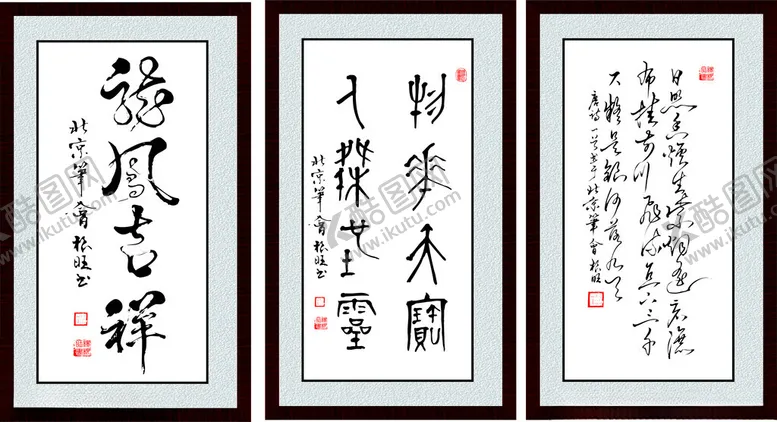 龍鳳吉祥
北京筆會
物華天寶
人傑地靈
北京筆會
日照香爐生紫烟遥看瀑
布挂前川飛流直下三千
尺疑是銀河落九天
唐詩一首 北京筆會
酷图网
www.ikutu.com